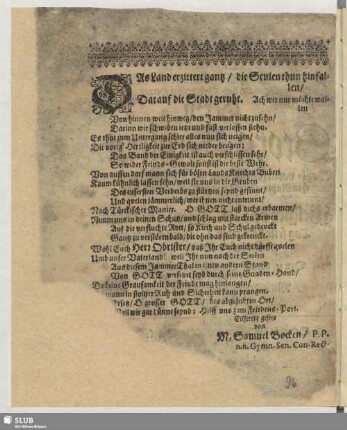 DAs Land erzittert gantz / die Seulen thun hinfal-
len /
Darauf die Stadt geruht. Ach wer nur möchte wal-
len
Von hinnen weit hinweg / den Jammer nicht zu sehn /
Darinn wir schweben itzt und fast verlassen stehn.
Es thut zum Untergang schier alles nun sich neigen /
Die vorig' Herrligkeit zur Erd sich nieder beugen:
Das Band der Einigkeit ist auch verschlissen sehr /
So wider Feinds-Gewalt sonst ist der beste Wehr.
Von aussen darf mann sich für bösen Land-Knechts Buben
Kaum köhnlich lassen sehn / weil sie uns in die Gruben
Des eussersten Verderbs zu stürtzen seynd gesinnt /
Und qvelen jämmerlich / wer ihnen nicht entrinnt /
Nach Türckischer Manier. O GOTT laß dichs erbarmen /
Nimm uns in deinen Schutz / und schlag mit starcken Armen
Auf die verfluchte Rott / so Kirch und Schul gedenckt
Gantz zu verstören bald / die ohn das sind gekränckt.
Wohl Euch Herr Obrister / das Ihr Euch nicht dürfft qvelen
Umb unser Vaterland / weil Ihr nun nach der Seelen
Aus diesem Jammer Thal in einen andern Stand
Von GOTT versetzet seyd durch seine Gnaden-Hand /
Da keine Grausamkeit der Feinde mag hinlangen /
mann in stoltzer Ruh und Sicherheit kann prangen.
O grosser GOTT / des abgelebten Ort /
Weil wir gar dünne seynd: Hilff uns zum Friedens-Port.
Eilfertig gesetzt
von
M. Samuel Bocken / P. P.
n. n. Gymn. Sen. Con-Rect.
96
SLUB
Wir führen Wissen.